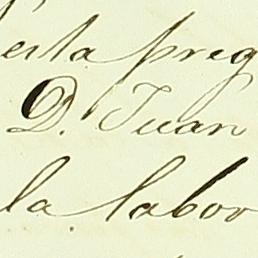 esta preg
D. Juan
la labor